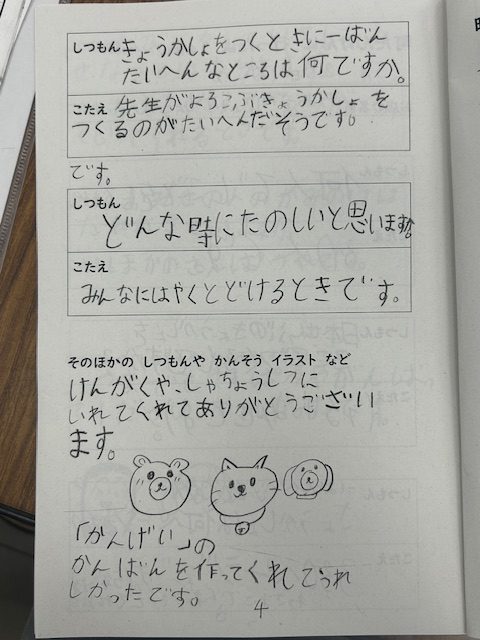 しつもん きょうかしょをつくときに一ばん
たいへんなところは何ですか。
こたえ 先生がよろこぶきょうかしょを
つくるのがたいへんだそうです。
です。
しつもん
どんな時にたのしいと思いますか。
こたえ
みんなにはやくとどけるときです。
そのほかの しつもんや かんそう イラスト など
けんがくや、しゃちょうしつに
いれてくれてありがとうござい
ます。
「かんげい」の
かんばんを作ってくれてうれ
しかったです。
4